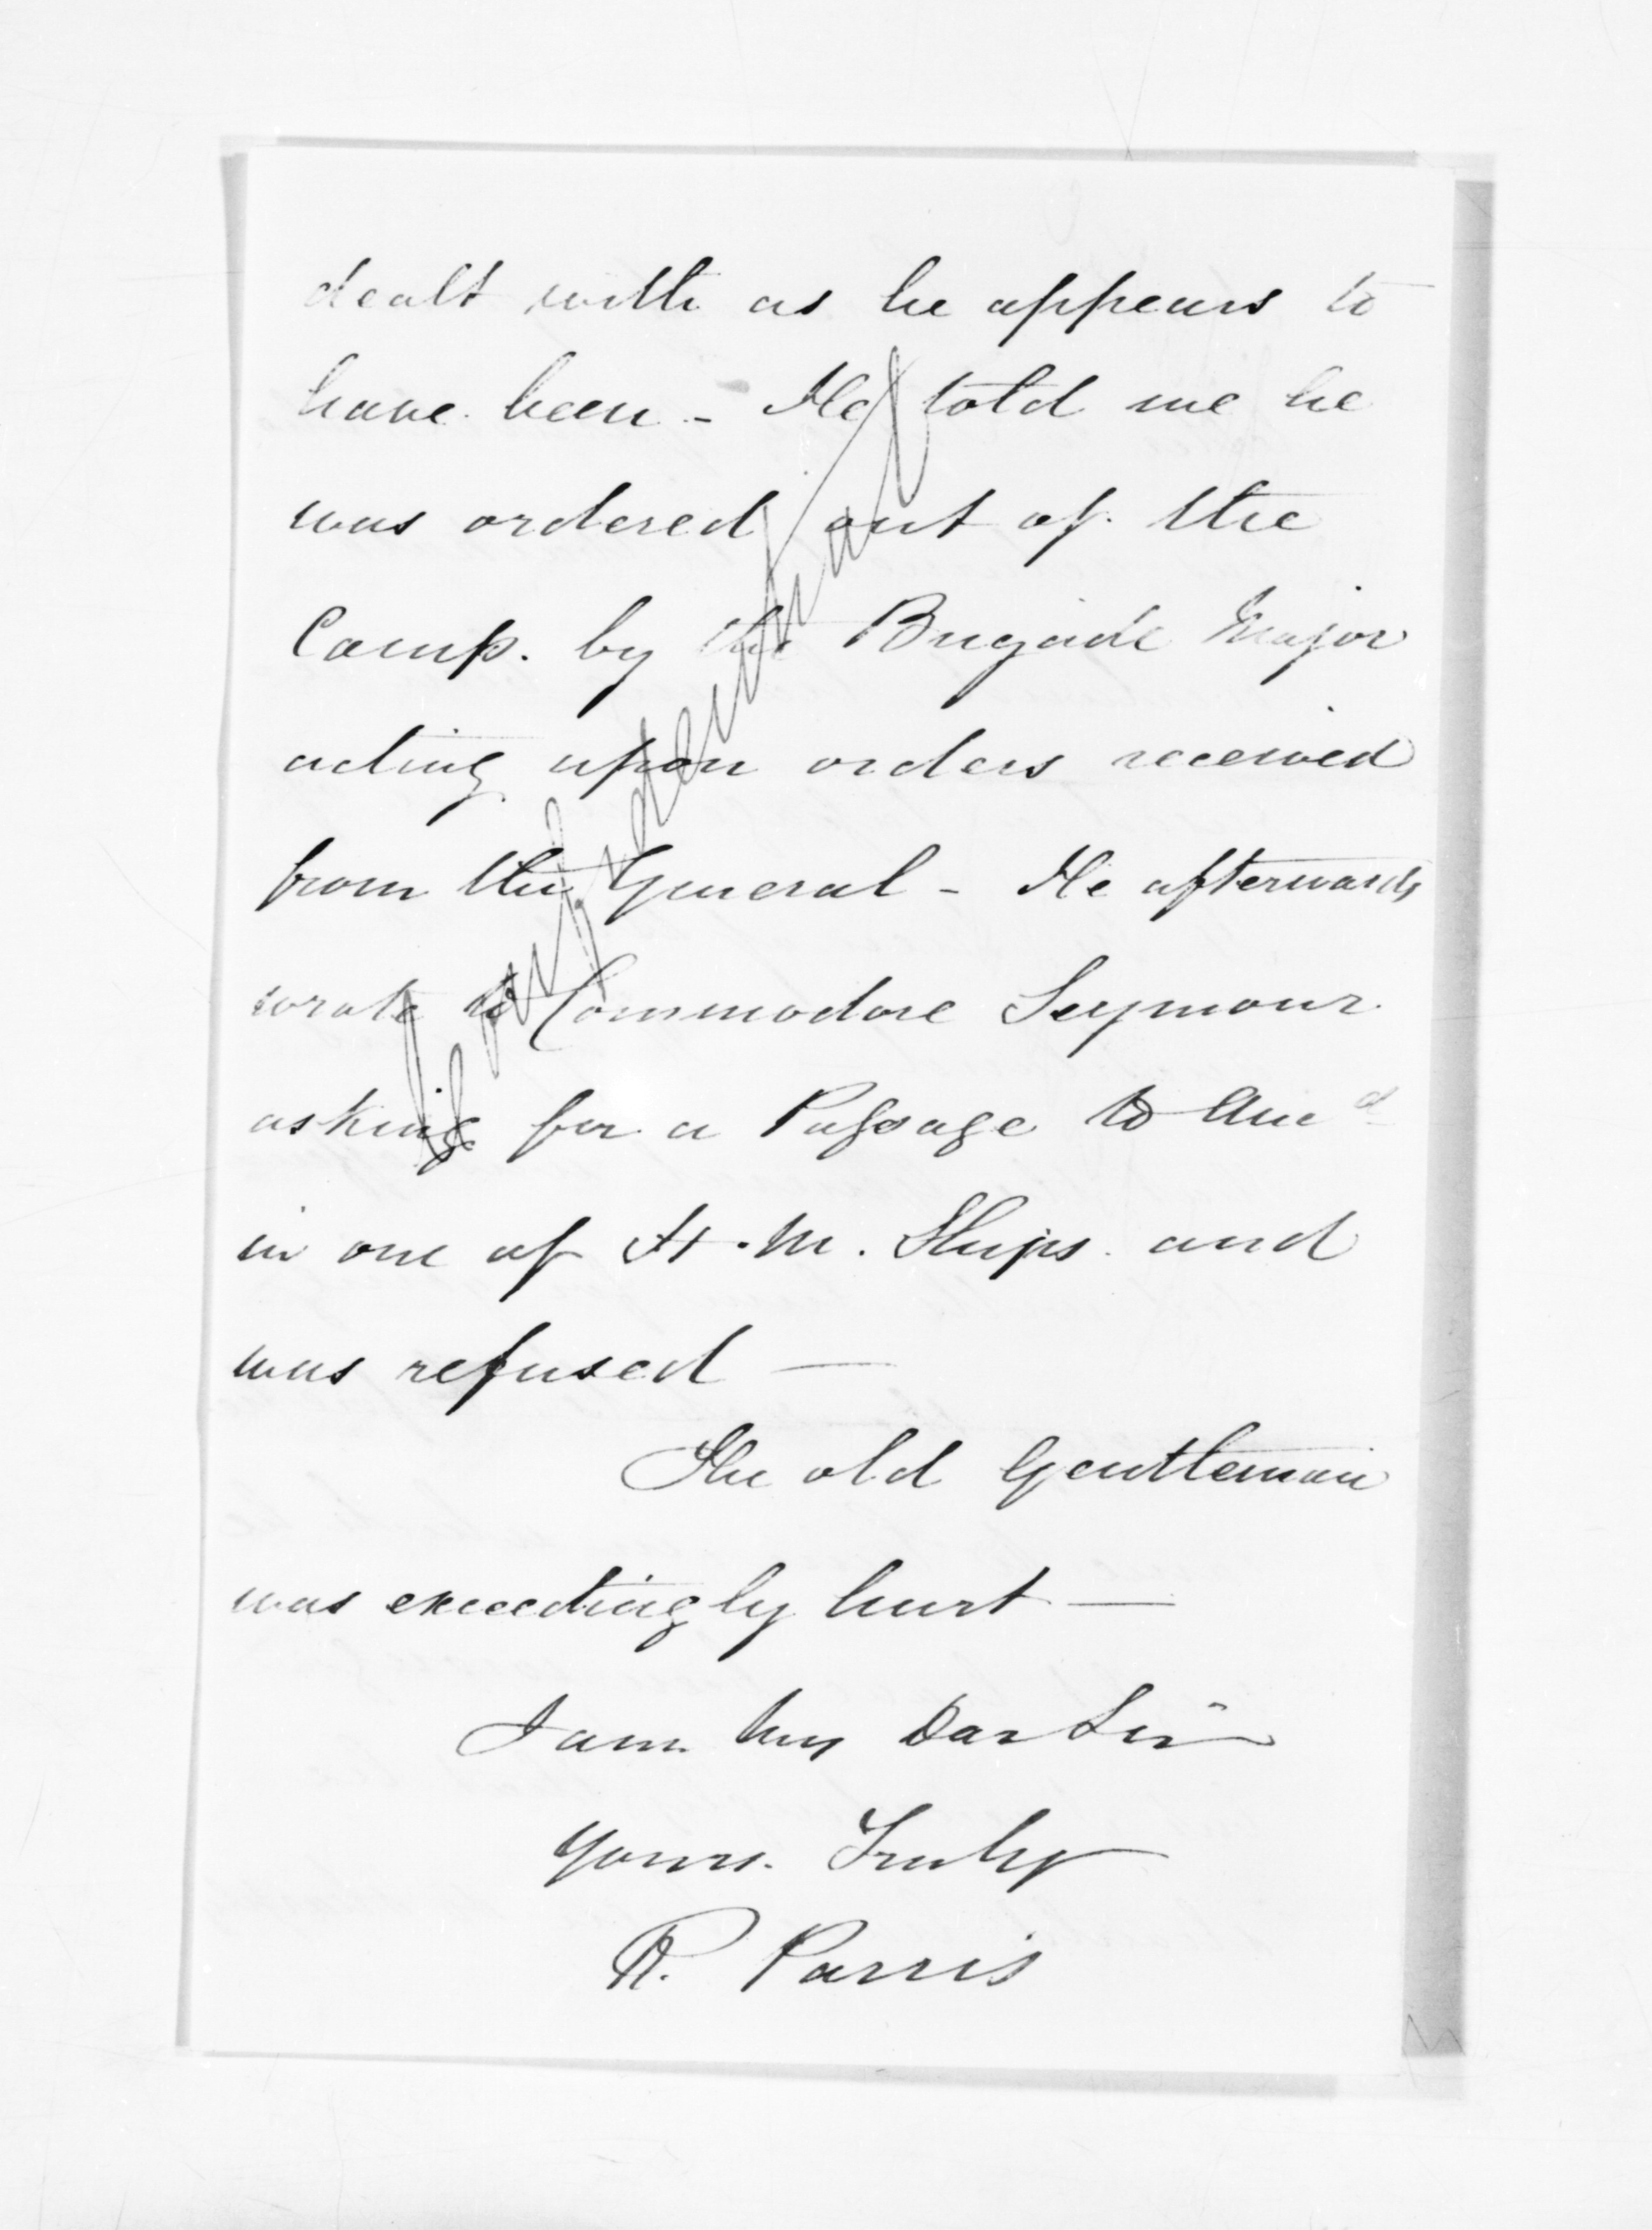 dealt with as he appears to
have been - He told me he
was ordered out of the
Camp. by the Brigade Major
acting upon orders received
from the General - He afterwards
wrote to Commodore Seymour
asking for a Passage to Auc d
in one of H. M. Ships and
was refused —
The old Gentleman
was exceedingly hurt —
I am My Dear Sir
Yours Truly
R. Parris
Confidential